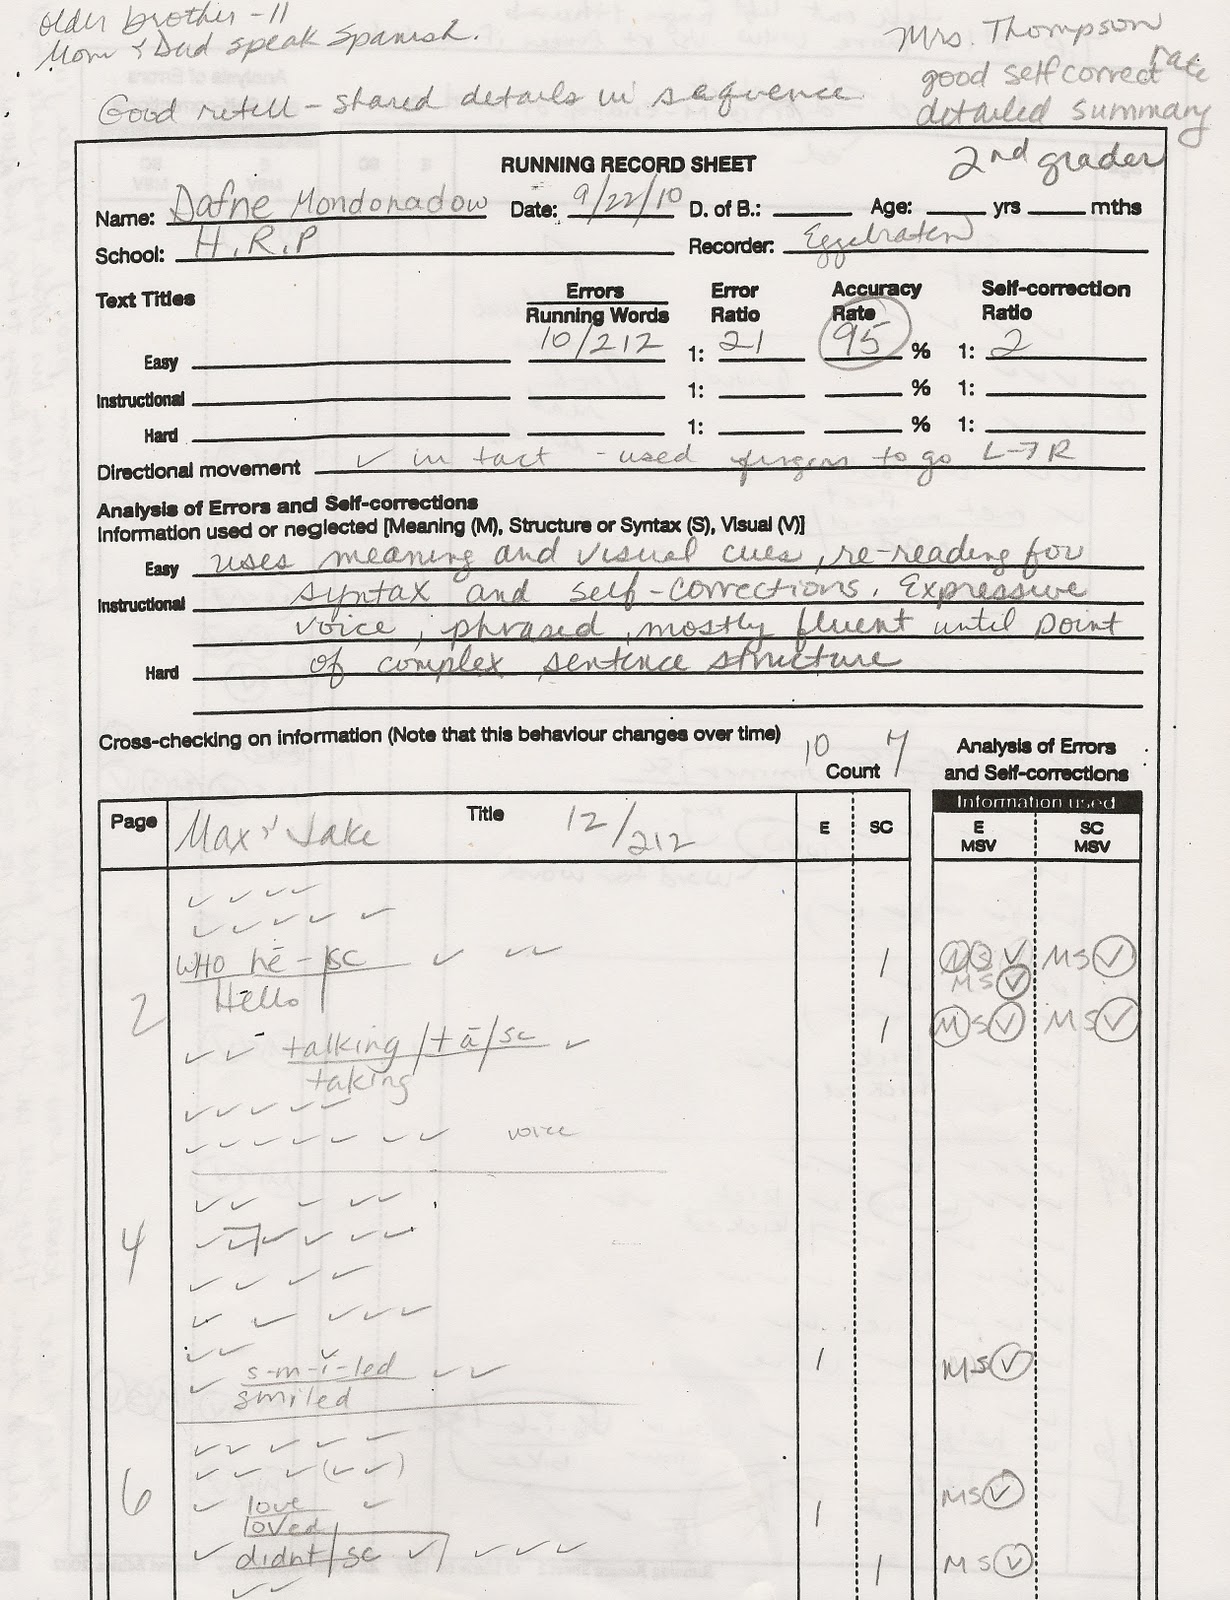 older brother - 11
Mom & Dad speak Spanish.
Mrs. Thompson
good self correct rate
detailed summary
Good retell - shared details in sequence
2nd grader
RUNNING RECORD SHEET
Name: Dafne Mondonadow Date: 9/22/10 D. of B.: Age: yrs mths
School: H.R.P Recorder: Eggebraten
Text Titles Errors Running Words Error Ratio Accuracy Rate Self-correction Ratio
Easy 10/212 1: 21 95 % 1: 2
Instructional 1: % 1:
Hard 1: % 1:
Directional movement ✓ in tact - used fingers to go L→R
Analysis of Errors and Self-corrections
Information used or neglected [Meaning (M), Structure or Syntax (S), Visual (V)]
Easy uses meaning and visual cues, re-reading for
Instructional syntax and self-corrections. Expressive
voice, phrased, mostly fluent until point
Hard of complex sentence structure
Cross-checking on information (Note that this behaviour changes over time)
10 7
Count
Analysis of Errors and Self-corrections
Information used
Page Title E SC E MSV SC MSV
Max & Jake 12/212
✓ ✓ ✓ ✓
✓ ✓ ✓ ✓ ✓
WHO hē - |sc ✓ ✓ ✓ 1 M S V M S V
Hello M S V
2
✓ ✓ talking/tā/sc ✓ 1 M S V M S V
taking
✓ ✓ ✓ ✓ ✓
✓ ✓ ✓ ✓ ✓ ✓ ✓ voice
✓ ✓ ✓ ✓ ✓
4 ✓ ✓ ✓ ✓ ✓ ✓
✓ ✓ ✓ ✓
✓ ✓ ✓ ✓ ✓
✓ ✓ ✓
✓ s-m-i-led ✓ ✓ 1 M S V
smiled
✓ ✓ ✓ ✓ ✓
✓ ✓ ✓ (✓ ✓)
6 ✓ love ✓ 1 M S V
loved
✓ didnt/sc ✓ ✓ ✓ ✓ 1 M S V
✓ ✓